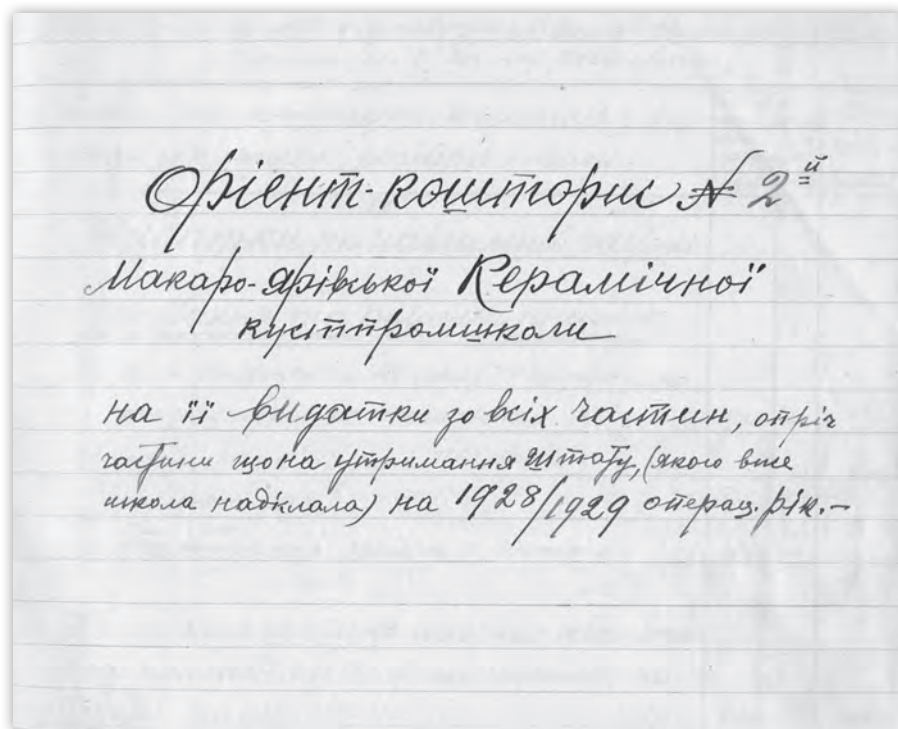 Орієнт-кошторис № 2ий
Макаро-Ярівської Керамічної
кустпромшколи
на її видатки зо всіх частин, опріч
частини що на утримання штату, (якого вже
школа надіслала) на 1928/1929 операц. рік.–